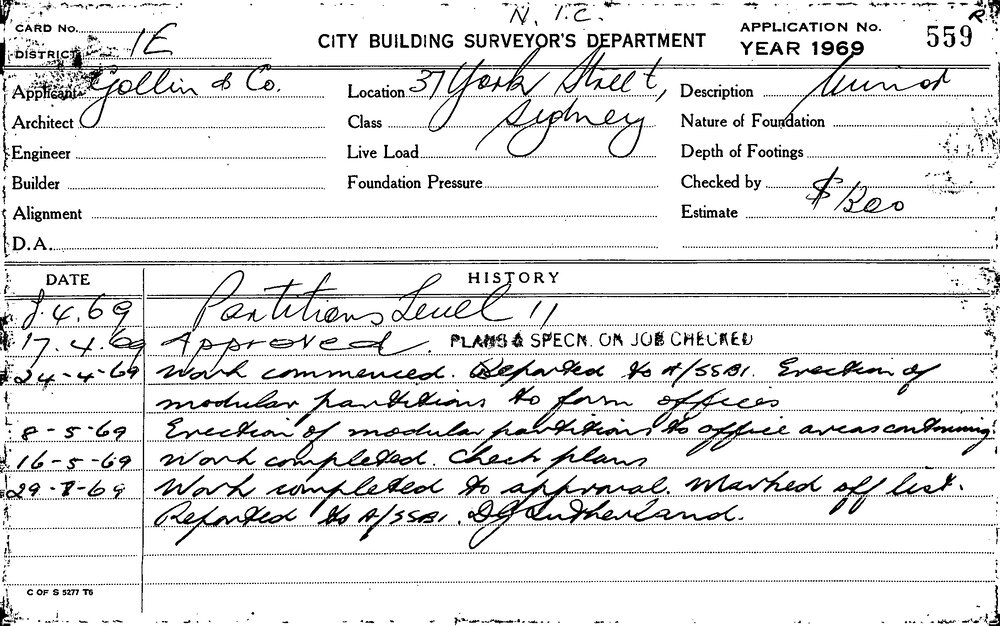 N.I.C.
CARD No. CITY BUILDING SURVEYOR'S DEPARTMENT APPLICATION No. 559 R
DISTRICT 1E YEAR 1969
Applicant Gollin & Co. Location 37 York Street, Description Minor
Architect Class Sydney Nature of Foundation
Engineer Live Load Depth of Footings
Builder Foundation Pressure Checked by
Alignment Estimate $1200
D.A.
DATE HISTORY
8.4.69 Partitions Level 11
17.4.69 Approved. PLANS & SPECN. ON JOB CHECKED
24-4-69 Work commenced. Reported to A/SSBI. Erection of
modular partitions to form offices
8-5-69 Erection of modular partitions to office areas continuing.
16-5-69 Work completed. Check plans
29-8-69 Work completed to approval. Marked off list.
Reported to A/SSBI. DJ Sutherland.
C OF S 5277 T6